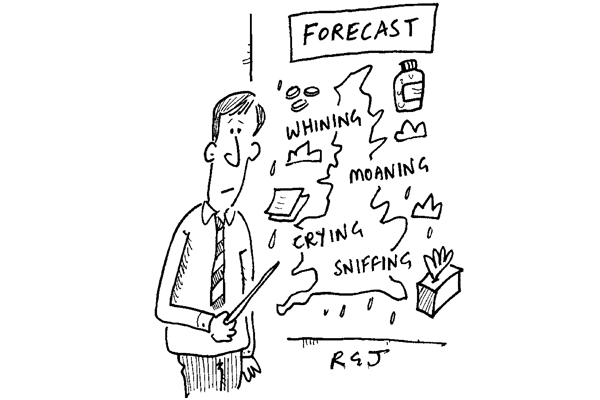 FORECAST
WHINING
MOANING
CRYING
SNIFFING
R&J